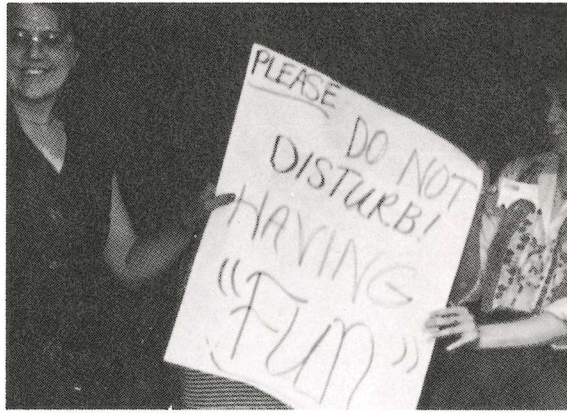 PLEASE
DO NOT
DISTURB!
HAVING
"FUN"